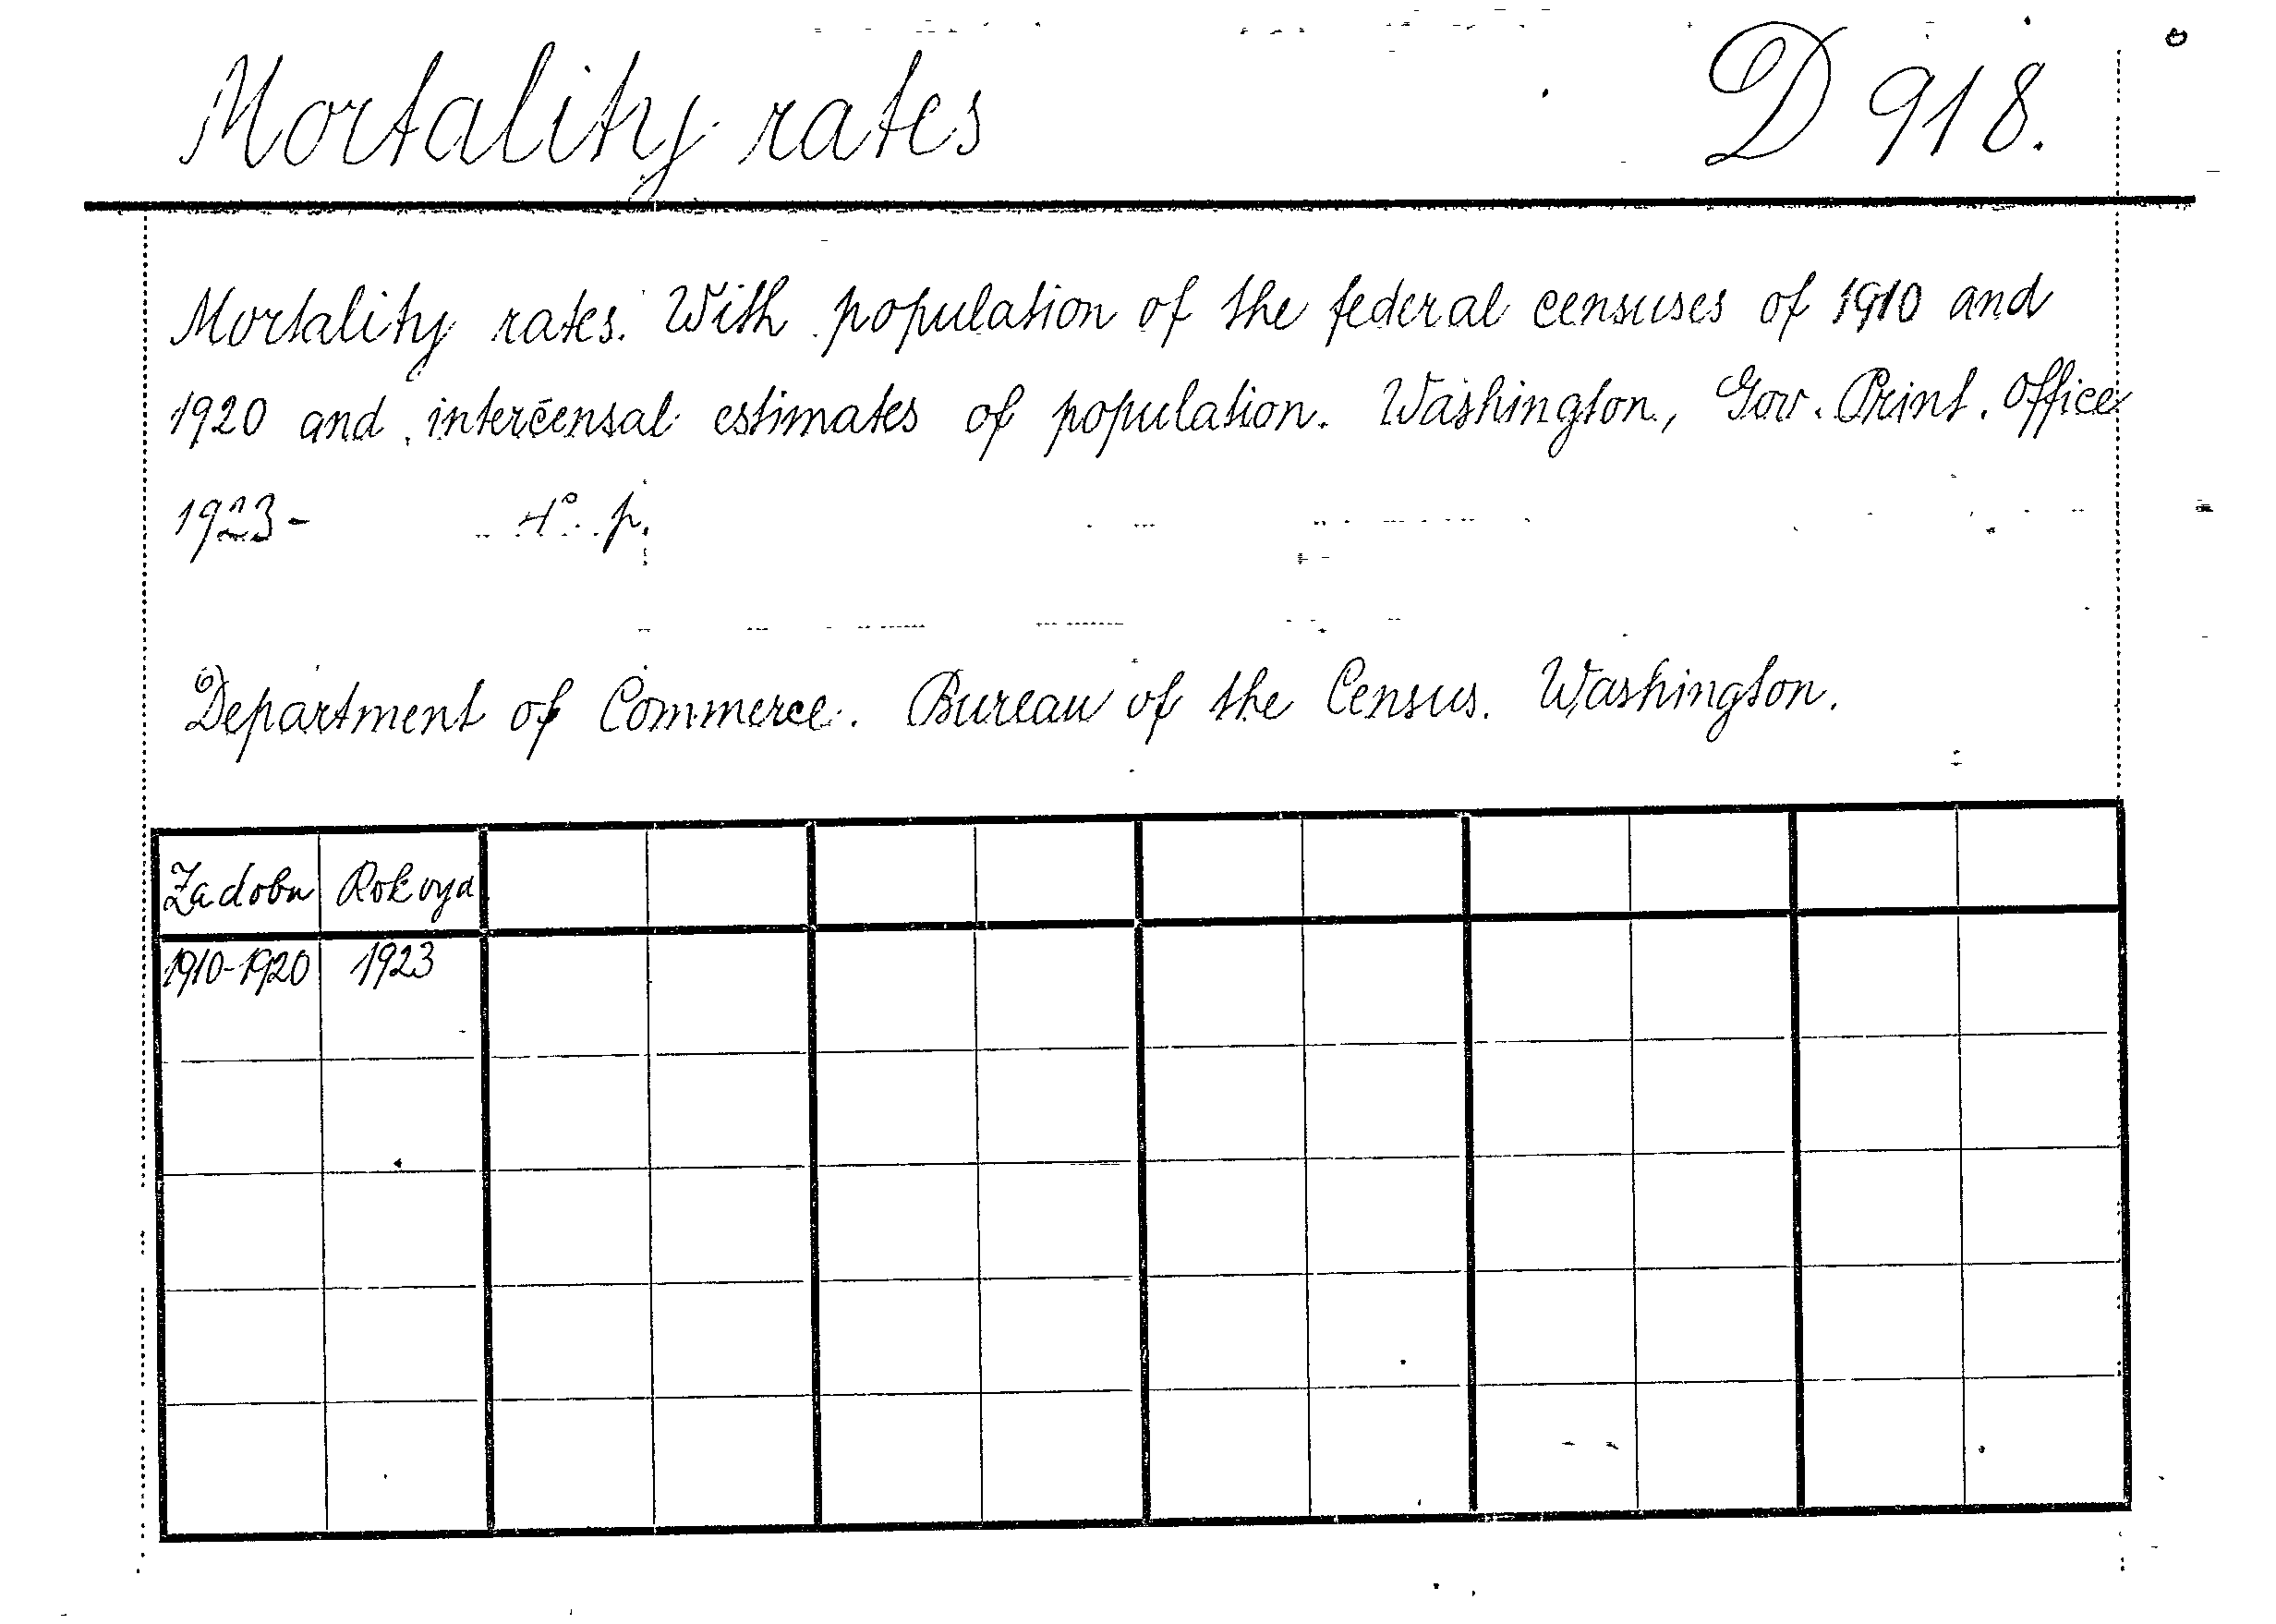 Mortality rates D 918.
Mortality rates. With population of the federal censuses of 1910 and
1920 and intercensal estimates of population. Washington, Gov. Print. Office
1923- 4°. p.
Department of Commerce. Bureau of the Census. Washington.
Za dobu Rok vyd
1910-1920 1923